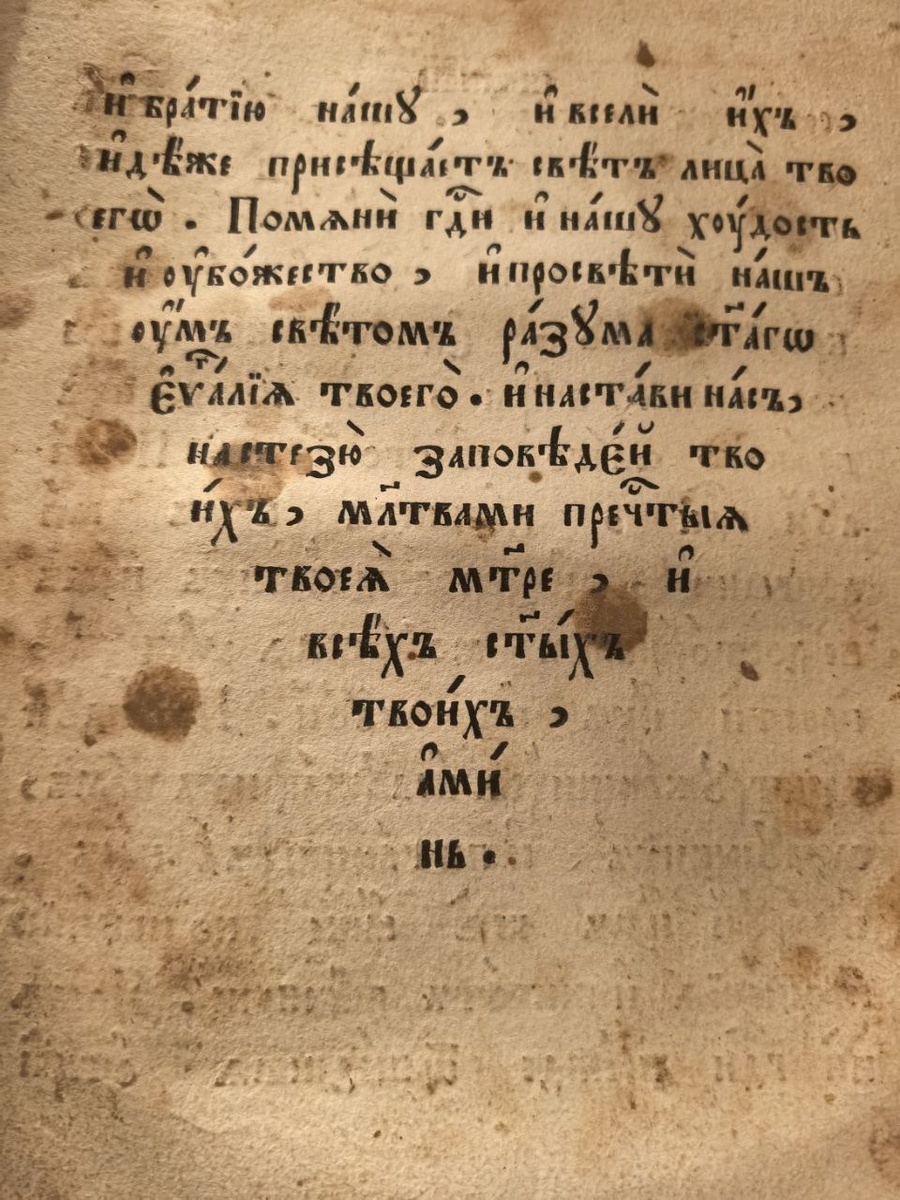 и҆ бра́тїю на́шꙋ , и҆ вселѝ и҆́хъ ,
и҆дѣ́же присѣща́етъ свѣ́тъ лица̀ тво
егѡ̀ . Помѧнѝ гдⷭ҇и и҆ на́шꙋ хоу́дость
и҆ оу҆бо́жество , и҆ просвѣтѝ на́шъ
оу҆́мъ свѣ́томъ ра́зꙋма ст҃а́гѡ
є҆ѵⷢ҇а́лїѧ твоего̀ . и҆ наста́ви на́съ ,
на стезю̀ заповѣде́й тво
и́хъ , мл҃твами преч҇тыѧ
твоеѧ̀ мт҃ре , и҆
всѣ́хъ ст҃ы́хъ
твои́хъ ,
а҆ми́
нь .